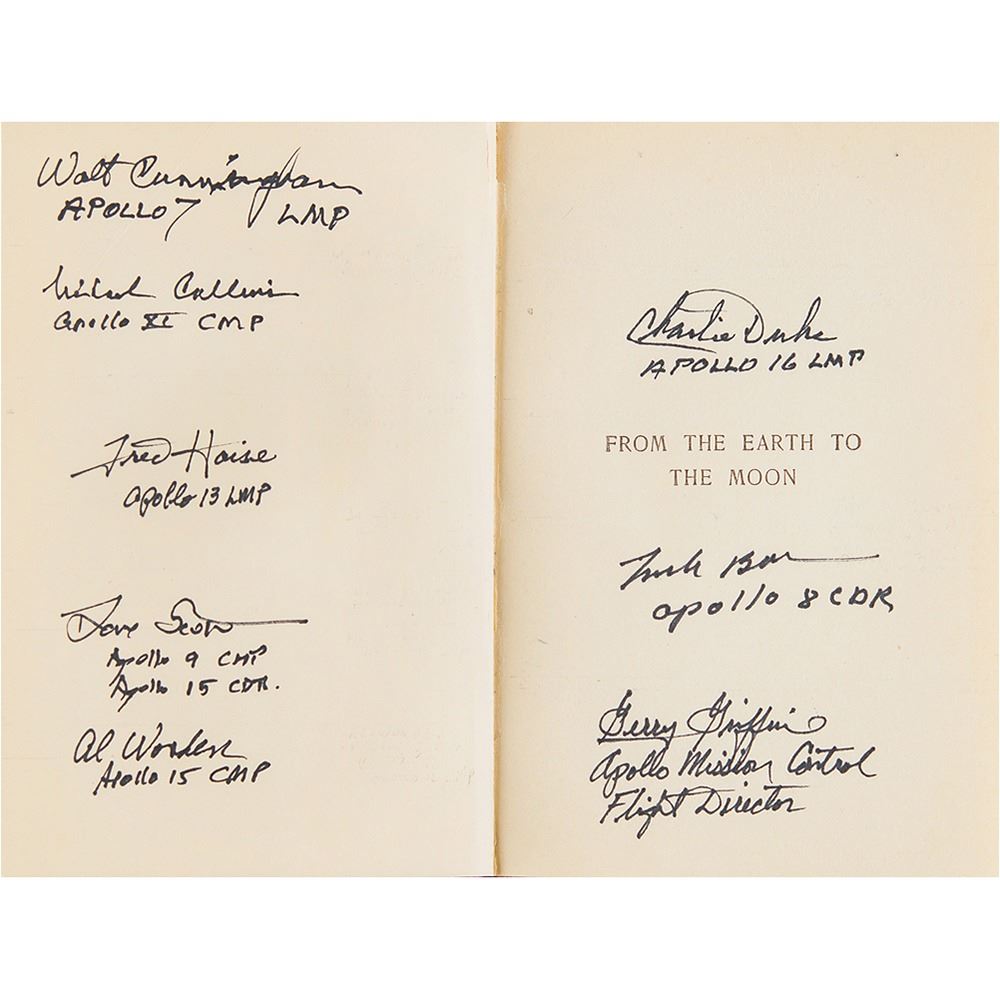 Walt Cunningham
APOLLO 7 LMP
Michael Collins
Apollo XI CMP
Fred Haise
Apollo 13 LMP
Dave Scott
Apollo 9 CMP
Apollo 15 CDR.
Al Worden
Apollo 15 CMP
Charlie Duke
APOLLO 16 LMP
FROM THE EARTH TO
THE MOON
Frank Borman
Apollo 8 CDR
Gerry Griffin
Apollo Mission Control
Flight Director